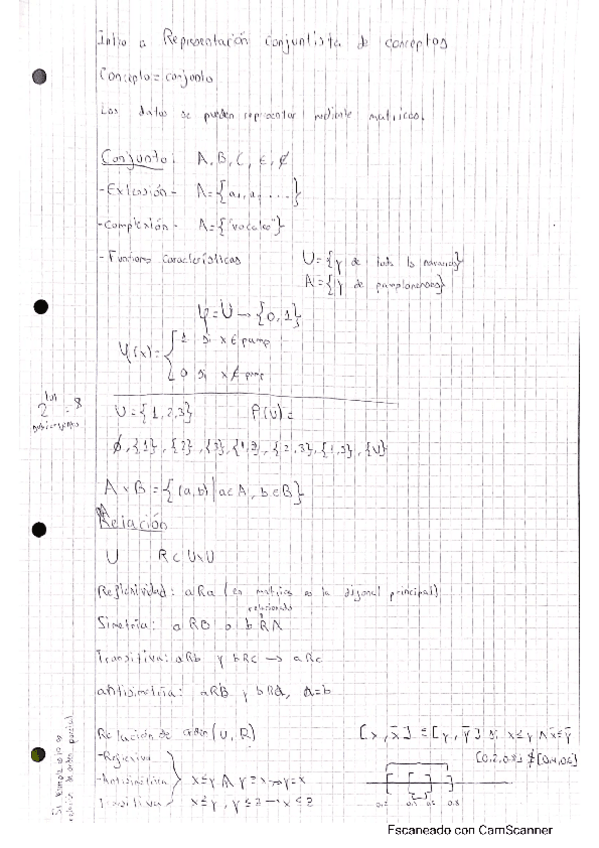 Intro a Representación conjuntista de conceptos
Concepto = conjunto
Los datos se pueden representar mediante matrices.
Conjunto: A, B, C, E, ∅
-Extensión- A={a₁, a, ...}
-Complexión- A={"vocales"}
-Funciones Características
U={γ de toda la navarra}
A={γ de pamplonicas}
φ=U→{0,1}
φ(x)={ 1 si x∈pamp
0 si x∉pamp
2^|U| = 8
subconjuntos
U={1,2,3} P(U)=
∅,{1},{2},{3},{1,2},{2,3},{1,3},{U}
A×B={(a,b)|a∈A, b∈B}
Relación
U R⊂U×U
Reflexividad: aRa (en matrices es la diagonal principal)
relacionado
Simetría: aRb o bRA
Transitiva: aRb y bRc → aRc
antisimetría: aRB y bRa, a=b
Relación de orden (U, R)
-Reflexiva
-Antisimetrica x≤y ∧ y≤x→y=x
Transitiva x≤y, y≤z→x≤z
[x, x̄] ≤ [y, ȳ] si x≤y ∧ x̄≤ȳ
0.2 0.4 0.6 0.8
Escaneado con CamScanner